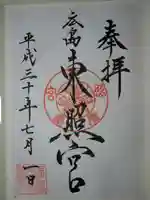 奉拝
広島東照宮
平成三十年七月一日